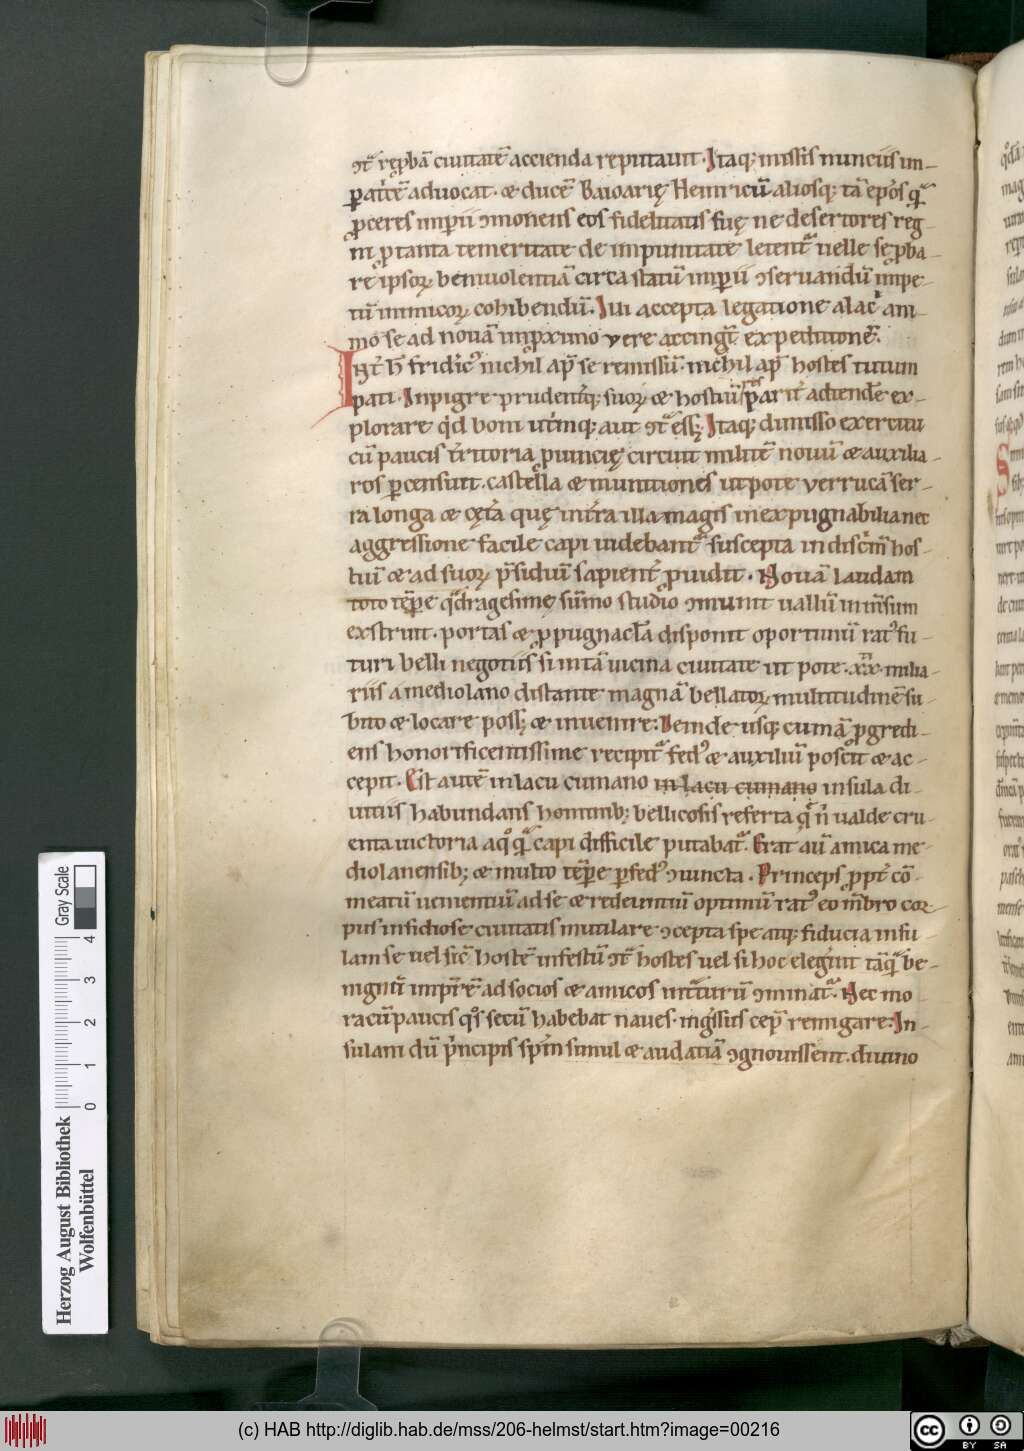 ɔt̄ rep̱bā ciuitatē accienda reputauit. Itaq; missis nunciis im-
ꝑat'cē aduocat. & ducē Baioarię Heinricū aliosq; tā ep̄os q̄ꝫ
ꝓceres imperii ɔmonens eos fidelitatis suę ne desertores reg
ni ꝓ tanta temeritate de impunitate letent᷑ uelle se ꝓba-
re ipsoꝝ beniuolentiā circa statū imꝑii ɔseruandū impe-
tū inimicoꝝ cohibendū. Illi accepta legatione alac' ani-
mo se ad nouā in ꝓximo vere accingt᷑ expeditionē.
Int' h̄ fridic᷒ nichil ap̄ se remissū. nichil ap̄ hostes tutum
pati. Inpigre prudent'q; suoꝝ & hostiū res parit' adtendere ex-
plorare qd boni utrimq; aut ɔt᷑ eēt; Itaq; dimisso exercitu
cū paucis t'ritoria ꝓuincię circuit militē nouū & auxilia-
ros ꝑcensuit. castella & munitiones utpote verrucā ser-
ra longa & cęt'a quę int'ra illa magis inexpugnabilia nec
aggressione facile capi uidebant᷑ suscepta in discrīn hos-
tiū & ad suoꝝ p̄sidiū sapient' ꝓuidit. Nouā laudam
toto tēpe q̄dragesimę sūmo studio ɔmunit uallū in īmsum
exstruit. portas & ꝓpugnacl'a disponit oportunū rat᷒ fu-
turi belli negotiis si in tā uicina ciuitate ut pote .xx. milia-
riis a mediolano distante magnā bellatoꝝ multitudinē su-
bito & locare posset & inuenire: Deinde usq; cumā ꝓgredi-
ens honorificentissime recipit᷑ fed᷒ & auxiliū poscit & ac-
cepit. Est autē in lacu cumano in lacu cumano insula di-
uitiis habundans hominib; bellicosis referta q̄ n̄ ualde cru-
enta uictoria a q̊q̄ꝫ capi difficile putabat᷑. Erat aū amica me-
diolanensib; & multo tēpe ꝑ fed᷒ ɔiuncta. Princeps ꝓpt' cō-
meatū uenientiū ad se & redeuntiū optimū rat᷒ eo mēbro cor-
pus insidiose ciuitatis mutilare ɔcepta spe atq; fiducia insu-
lam se uel sic̄ hostē infestū ɔt᷑ hostes uel si hoc elegerint tāq̄ꝫ be-
nignū imꝑ'rē ad socios & amicos intraturū ɔminat᷑. Nec mo-
ra cū paucis q̊s secū habebat naues. ingressus cep̄ remigare: In-
sulani dū p'ncipis sp̄m simul & audatiā ɔgnouissent. diuino
Herzog August Bibliothek
Wolfenbüttel
0 1 2 3 4
Gray Scale
(c) HAB http://diglib.hab.de/mss/206-helmst/start.htm?image=00216
cc BY SA